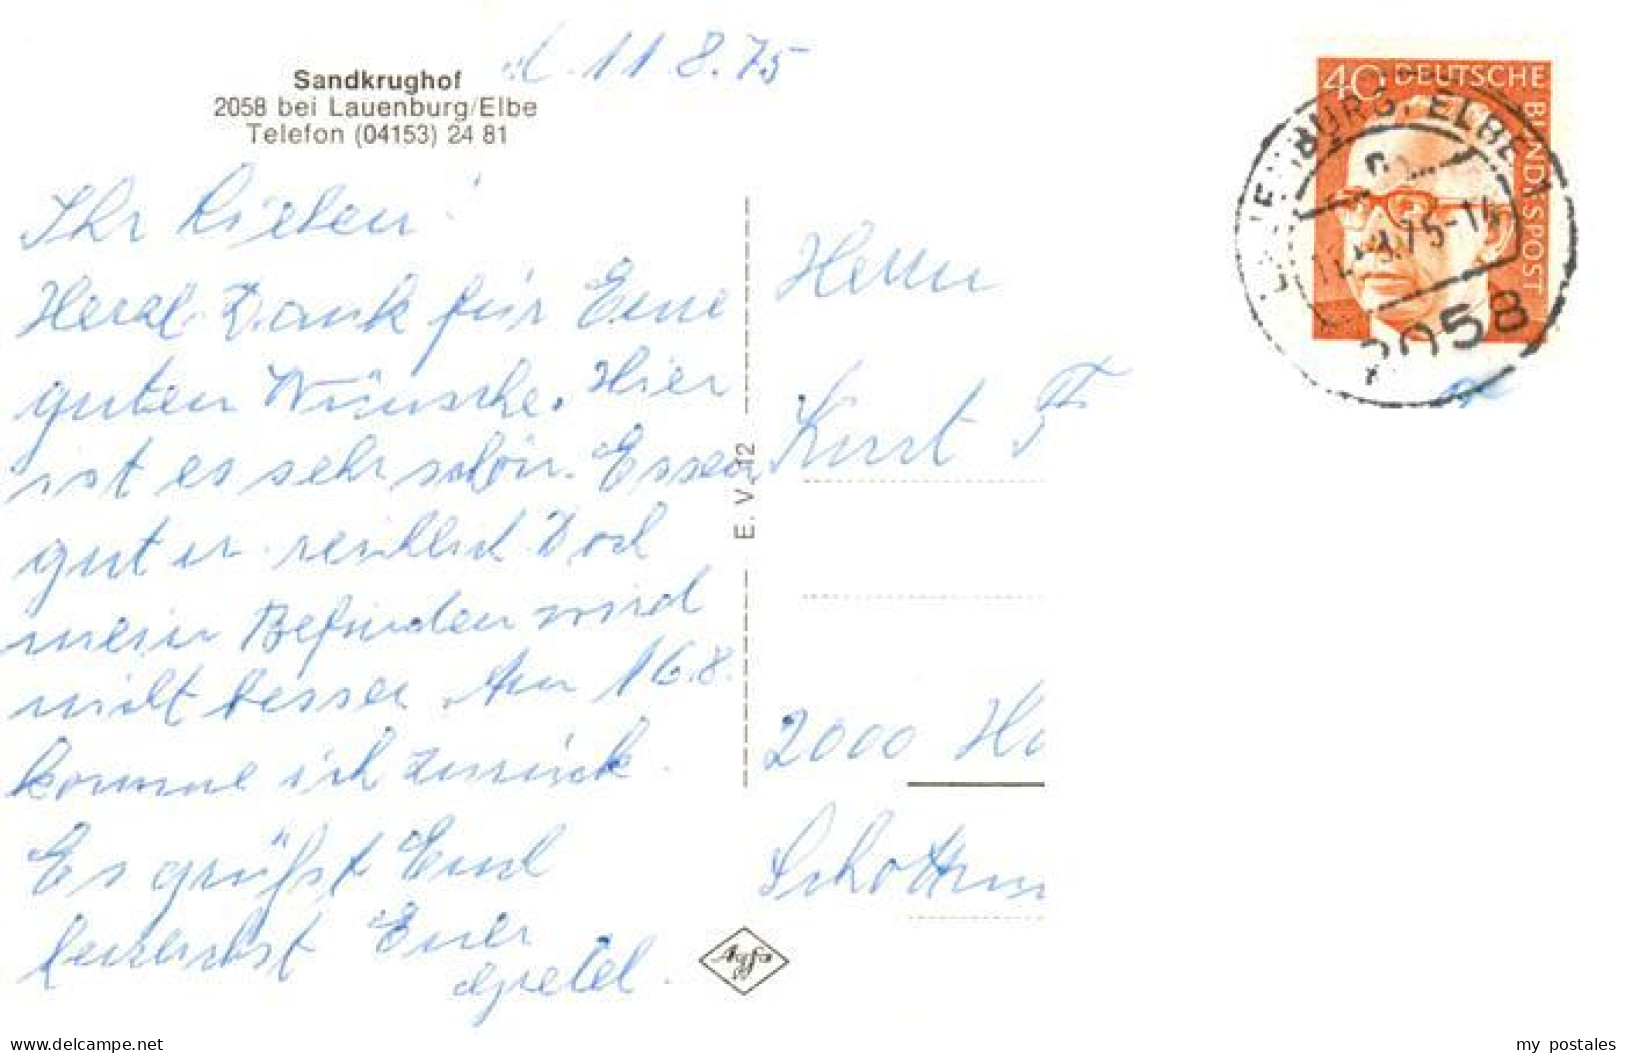 Sandkrughof
2058 bei Lauenburg/Elbe
Telefon (04153) 24 81
d. 11 8.75
Ihr Lieben!
Herzl. Dank für Eure
guten Wünsche. Hier
ist es sehr schön. Essen
gut u. reichlich Doch
mein Befinden wird
nicht besser. Am 16.8.
komme ich zurück.
Es grüßt Euch
herzlichst Euer
Gretel.
E. V. 12
Agfa
40 DEUTSCHE BUNDESPOST
LAUENBURG, ELBE 1
2058
Herrn
Kurt F
2000 Ha
Schottm
my postales
https://www.delcampe.net